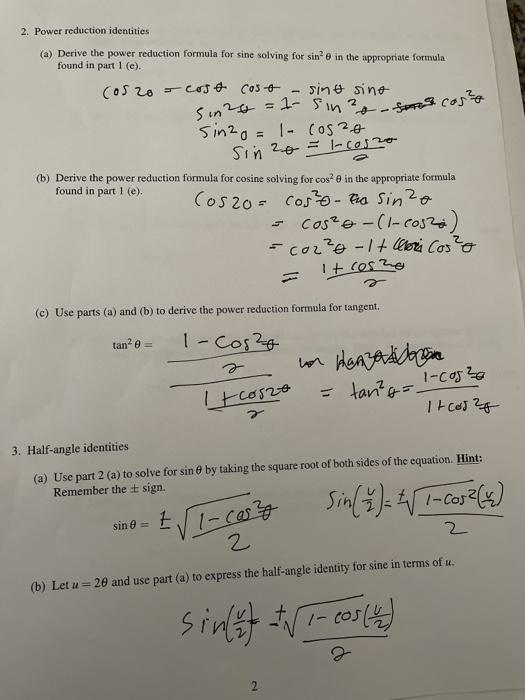 2. Power reduction identities
(a) Derive the power reduction formula for sine solving for sin² θ in the appropriate formula
found in part 1 (e).
cos 2θ = cos θ cos θ - sin θ sin θ
sin²θ = 1 - sin²θ - cos²θ
sin²θ = 1 - cos²θ
sin²θ = 1-cos2θ / 2
(b) Derive the power reduction formula for cosine solving for cos² θ in the appropriate formula
found in part 1 (e).
cos 2θ = cos²θ - sin²θ
= cos²θ - (1-cos²θ)
= cos²θ - 1 + cos²θ
= 1 + cos2θ / 2
(c) Use parts (a) and (b) to derive the power reduction formula for tangent.
tan² θ = 1 - cos2θ / 2
1 + cos2θ / 2
= tan²θ = 1-cos2θ / 1+cos2θ
3. Half-angle identities
(a) Use part 2 (a) to solve for sin θ by taking the square root of both sides of the equation. Hint:
Remember the ± sign.
sin θ = ±√ 1-cos2θ / 2
sin(u/2) = ±√ 1-cos2(u/2) / 2
(b) Let u = 2θ and use part (a) to express the half-angle identity for sine in terms of u.
sin(u/2) = ±√ 1-cos(u/2) / 2
2